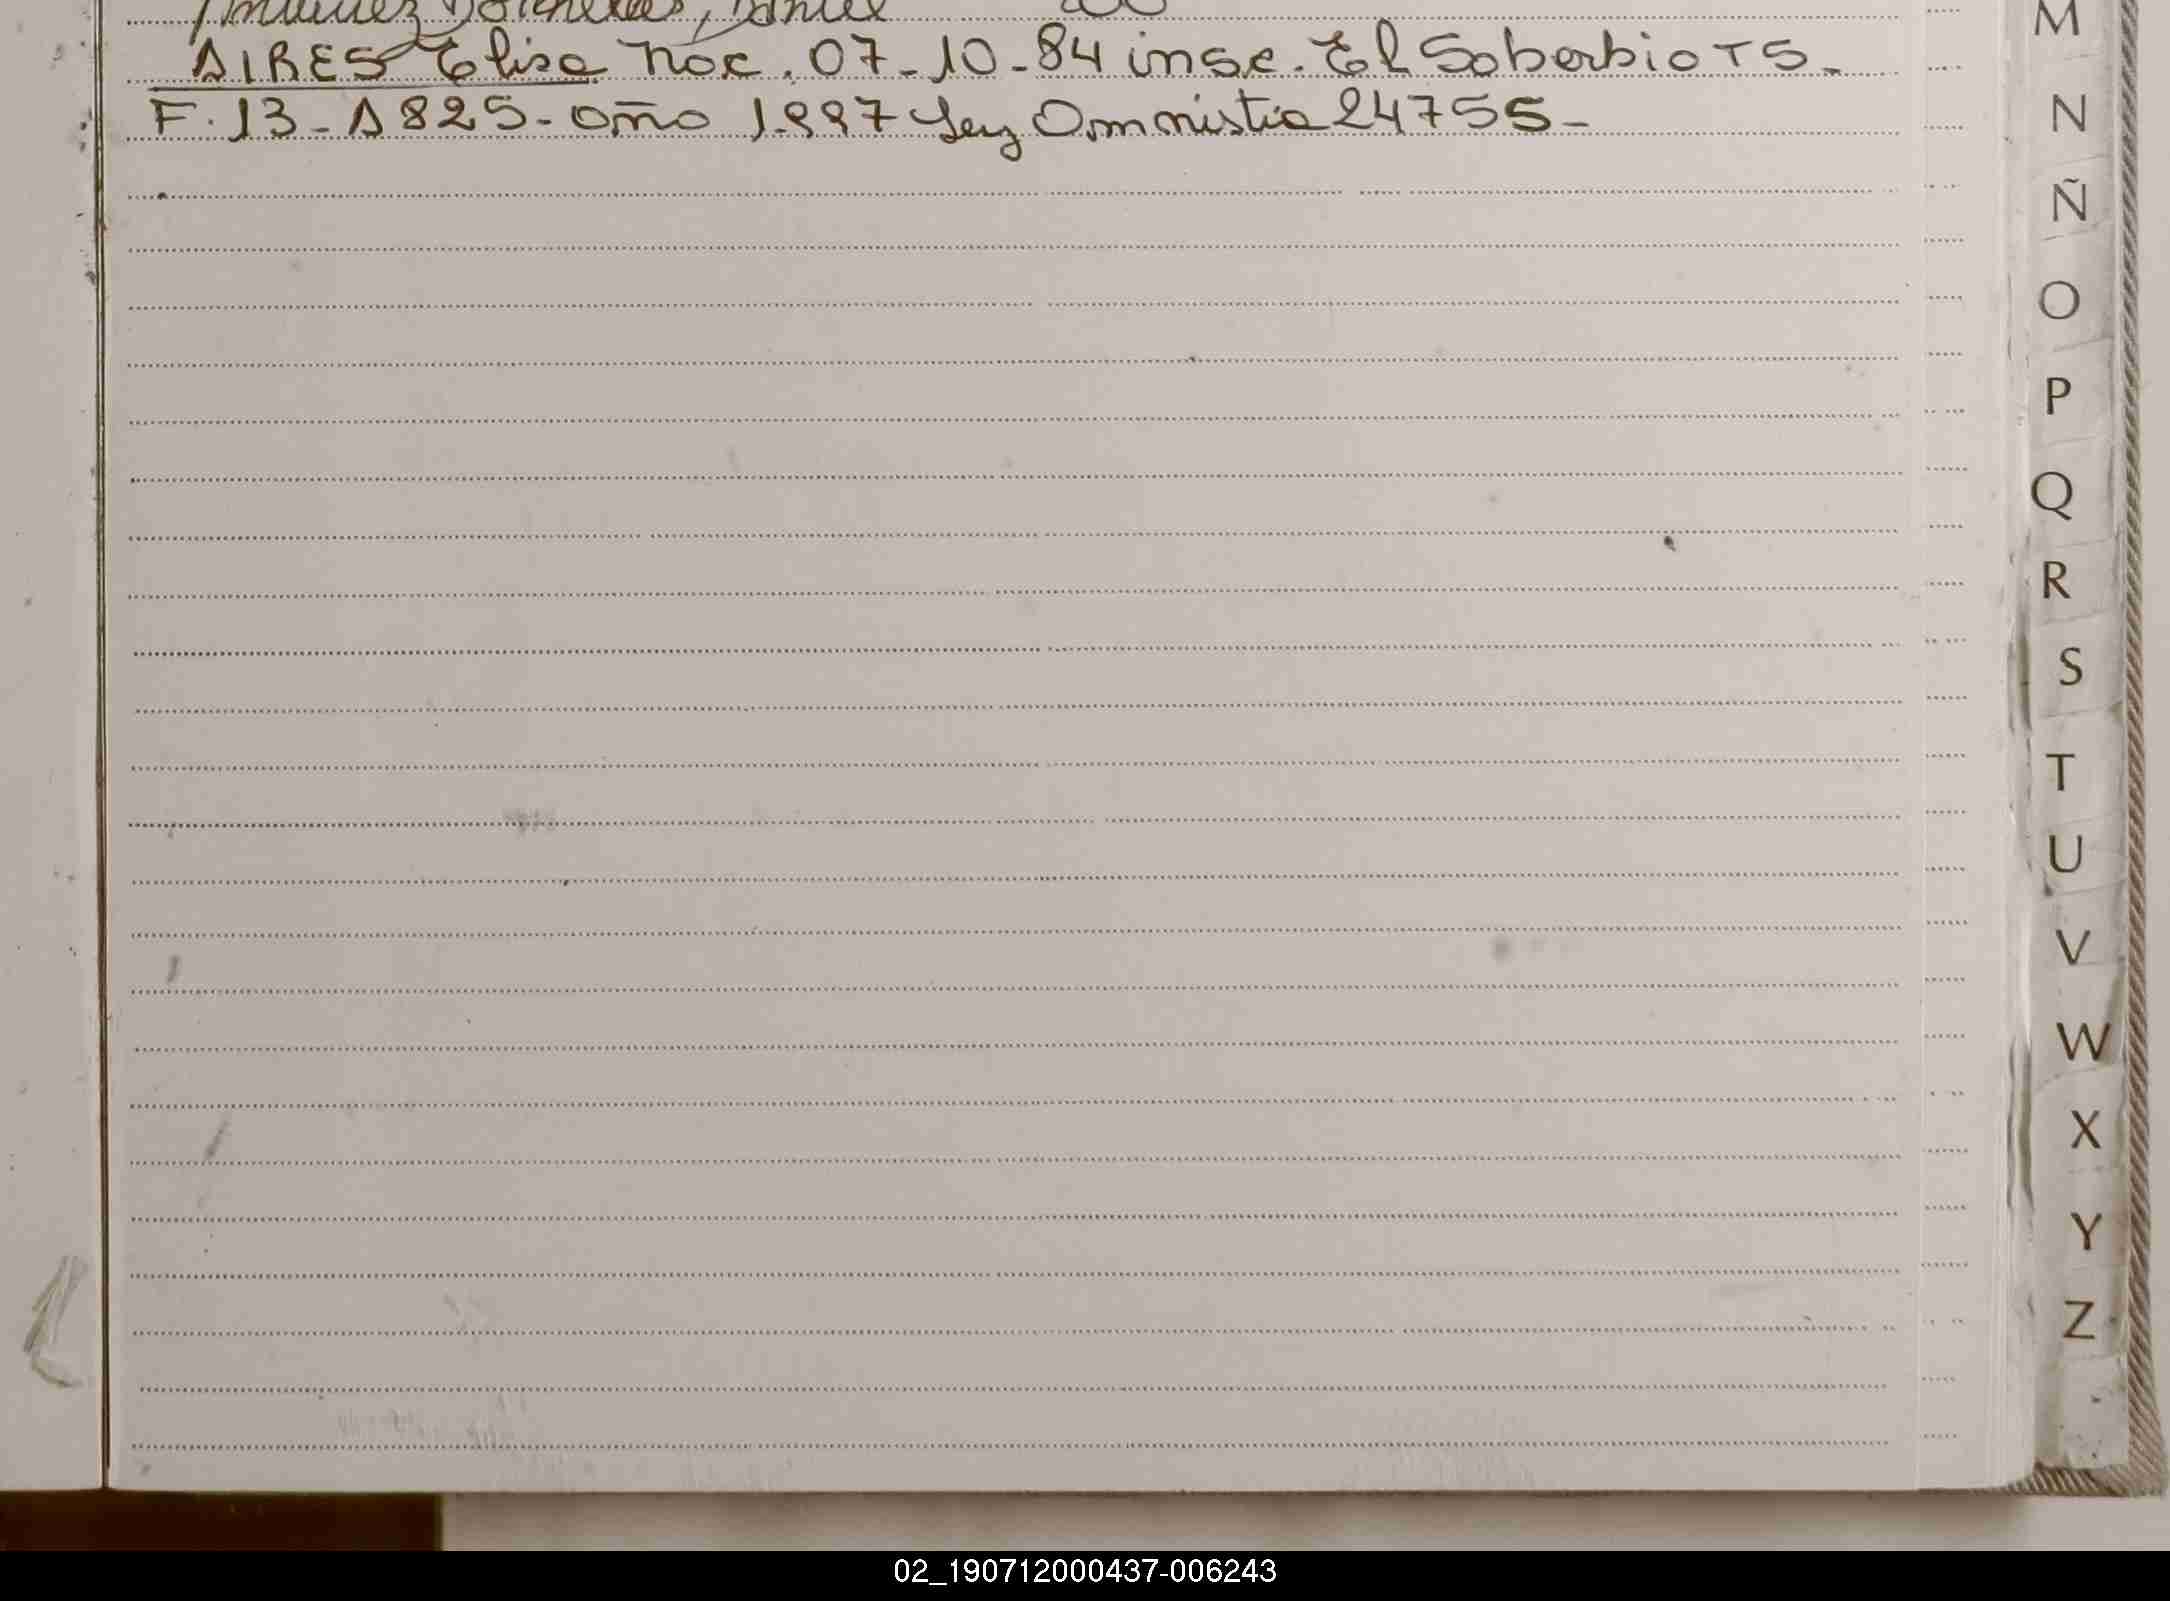 AIRES Elisa nac. 07-10-84 insc. El Soberbio T5-
F. 13-A 825-año 1.997 Ley Amnistia 24755-
M
N
Ñ
O
P
Q
R
S
T
U
V
W
X
Y
Z
02_190712000437-006243